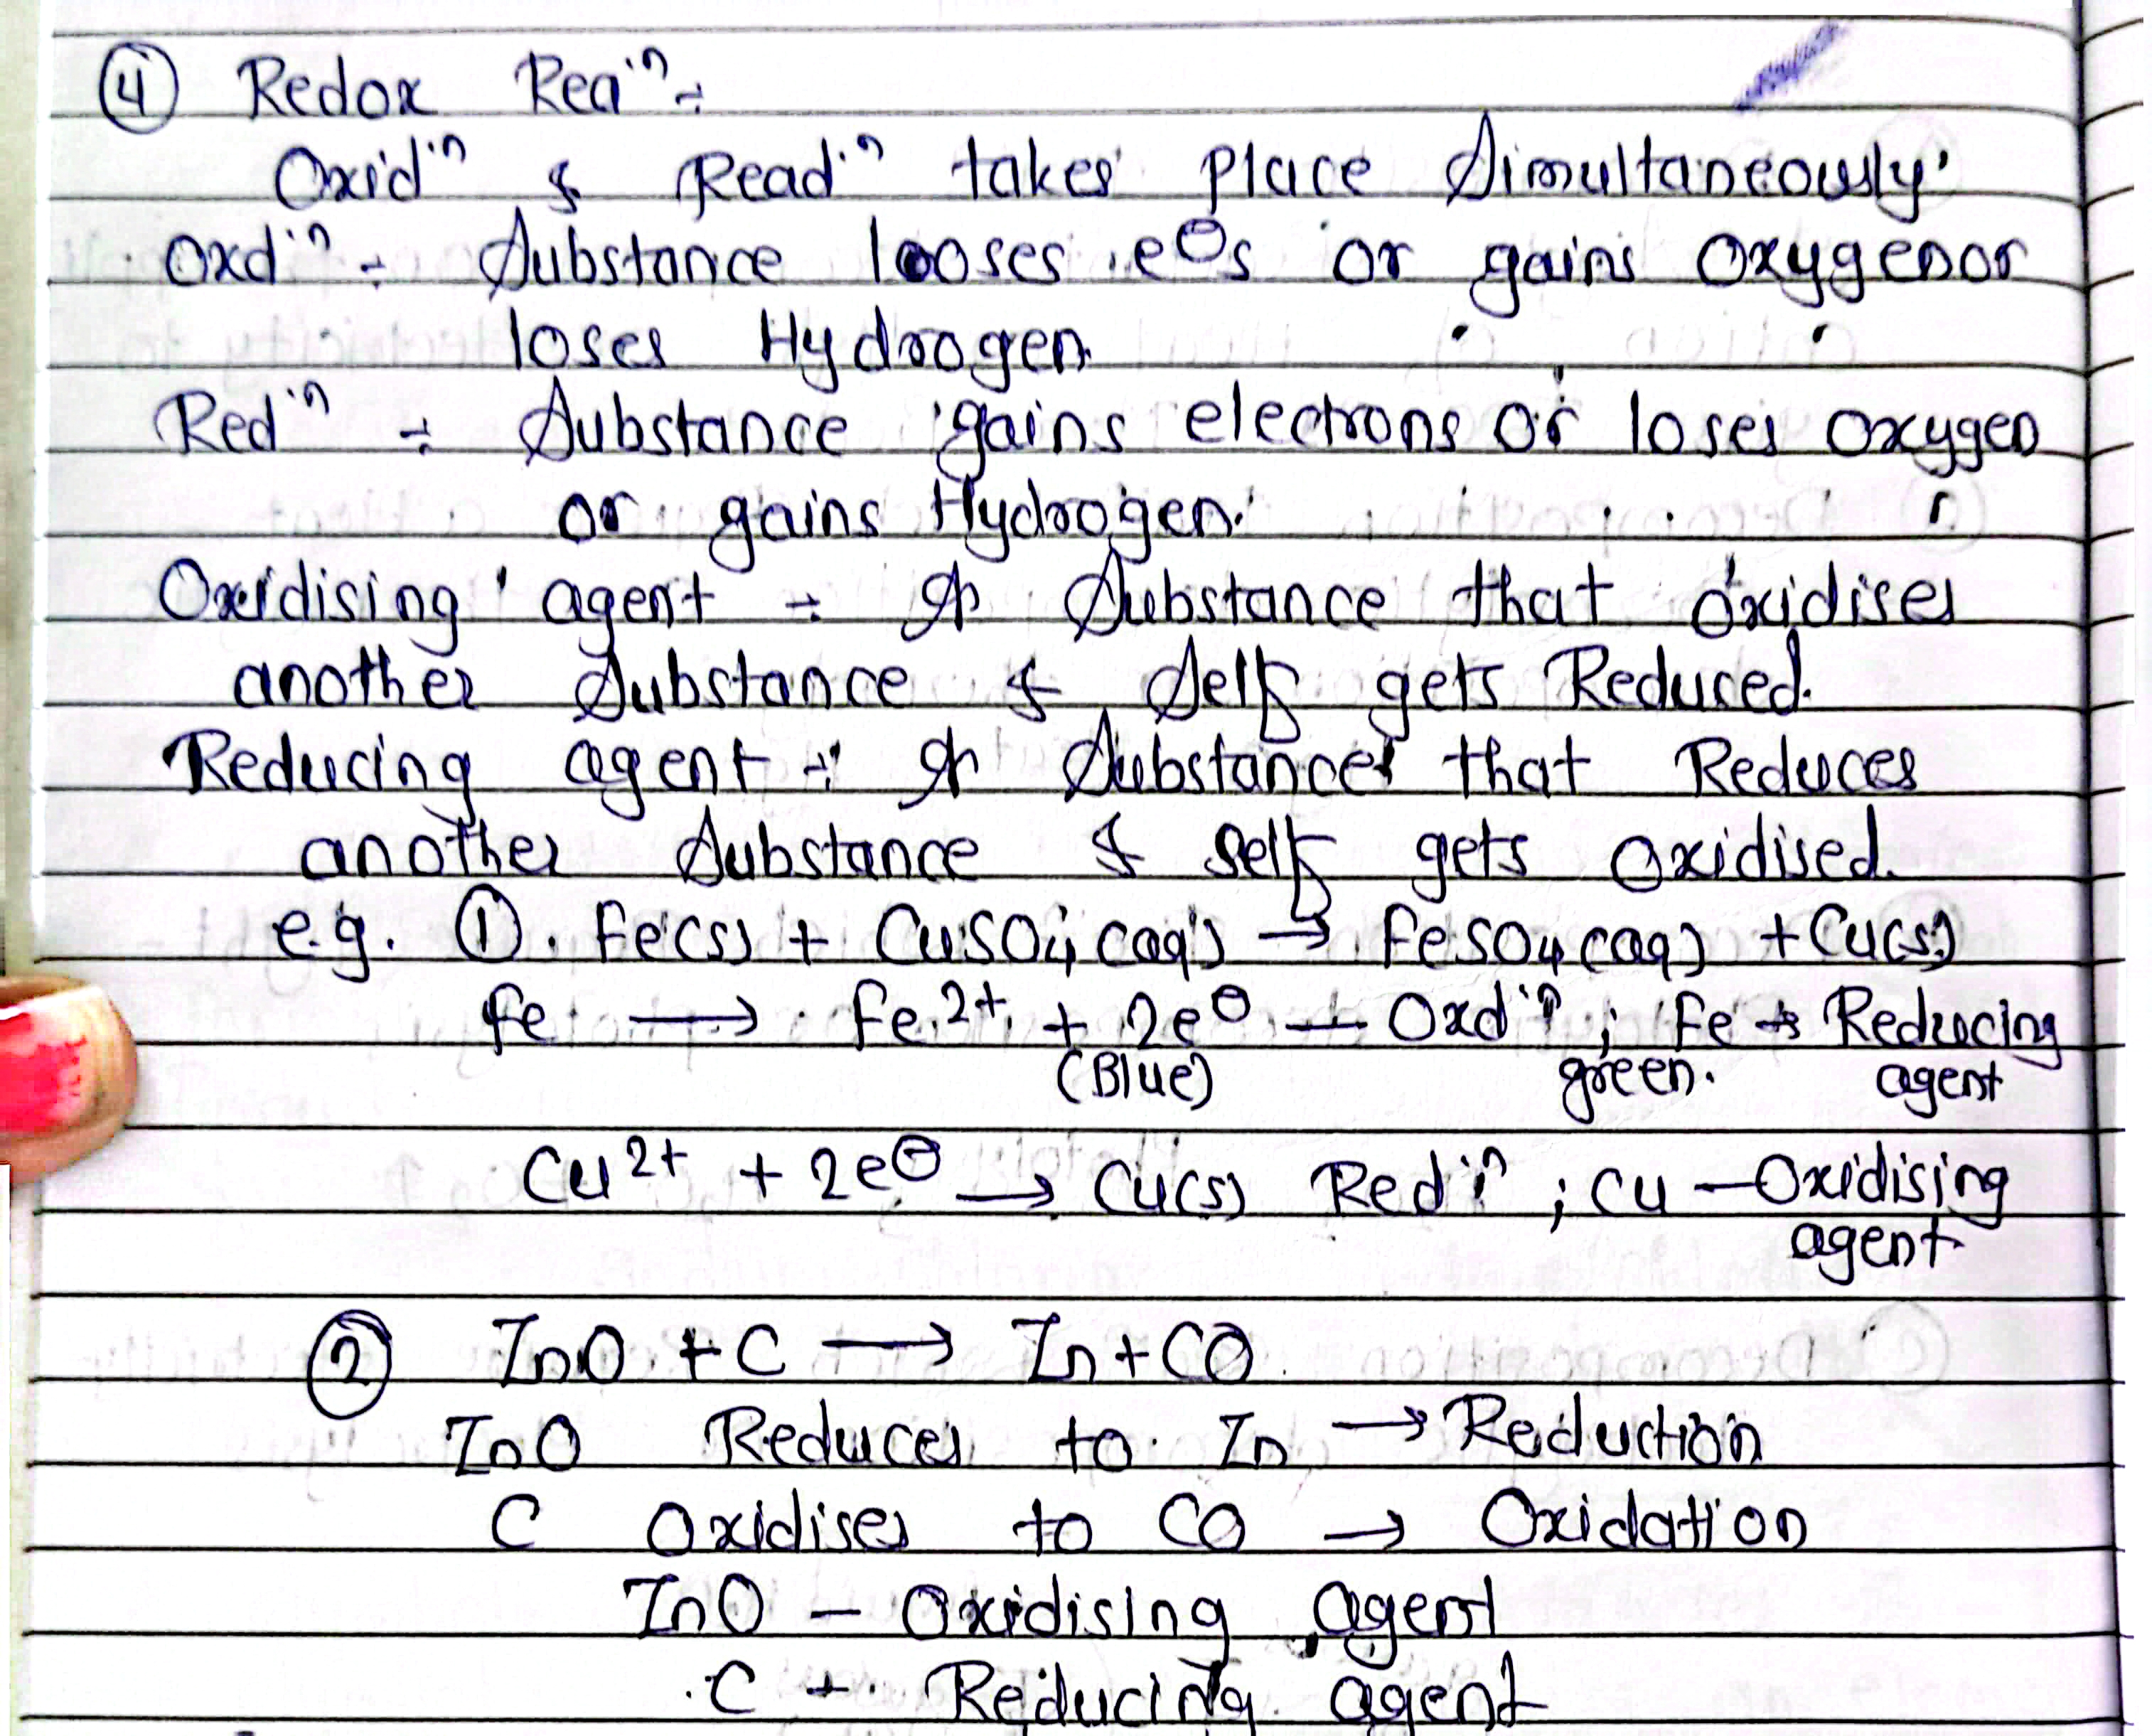 ④ Redox Reaiⁿ :-
Oxidiⁿ & Readiⁿ takes place Simultaneously.
Oxdiⁿ :- Substance looses e⊖s or gains Oxygen or
loses Hydrogen.
Rediⁿ :- Substance gains electrons or loses Oxygen
or gains Hydrogen.
Oxidising agent :- A Substance that oxidises
another Substance & Self gets Reduced.
Reducing agent :- A Substances that Reduces
another Substance & self gets Oxidised.
e.g. ① Fe(s) + CuSO4 (aq) → FeSO4 (aq) + Cu(s)
Fe → Fe2+ + 2e⊖ — Oxdiⁿ ; Fe → Reducing
(Blue) green. agent
Cu2+ + 2e⊖ → Cu(s) Rediⁿ ; Cu — Oxidising
agent
② ZnO + C → Zn + CO
ZnO Reduces to Zn → Reduction
C Oxidises to CO → Oxidation
ZnO — Oxidising agent
C — Reducing agent